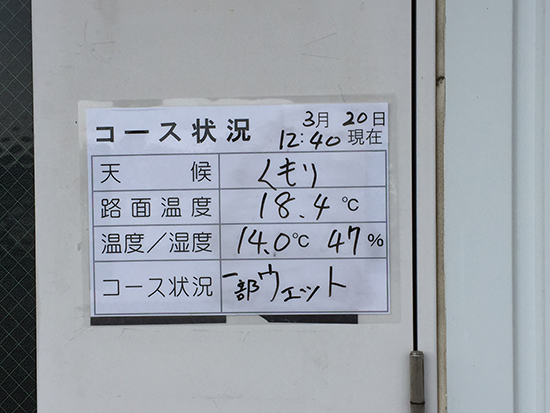 コース状況 3月 20日
12:40 現在
天候 くもり
路面温度 18.4℃
温度／湿度 14.0℃ 47%
コース状況 一部ウェット